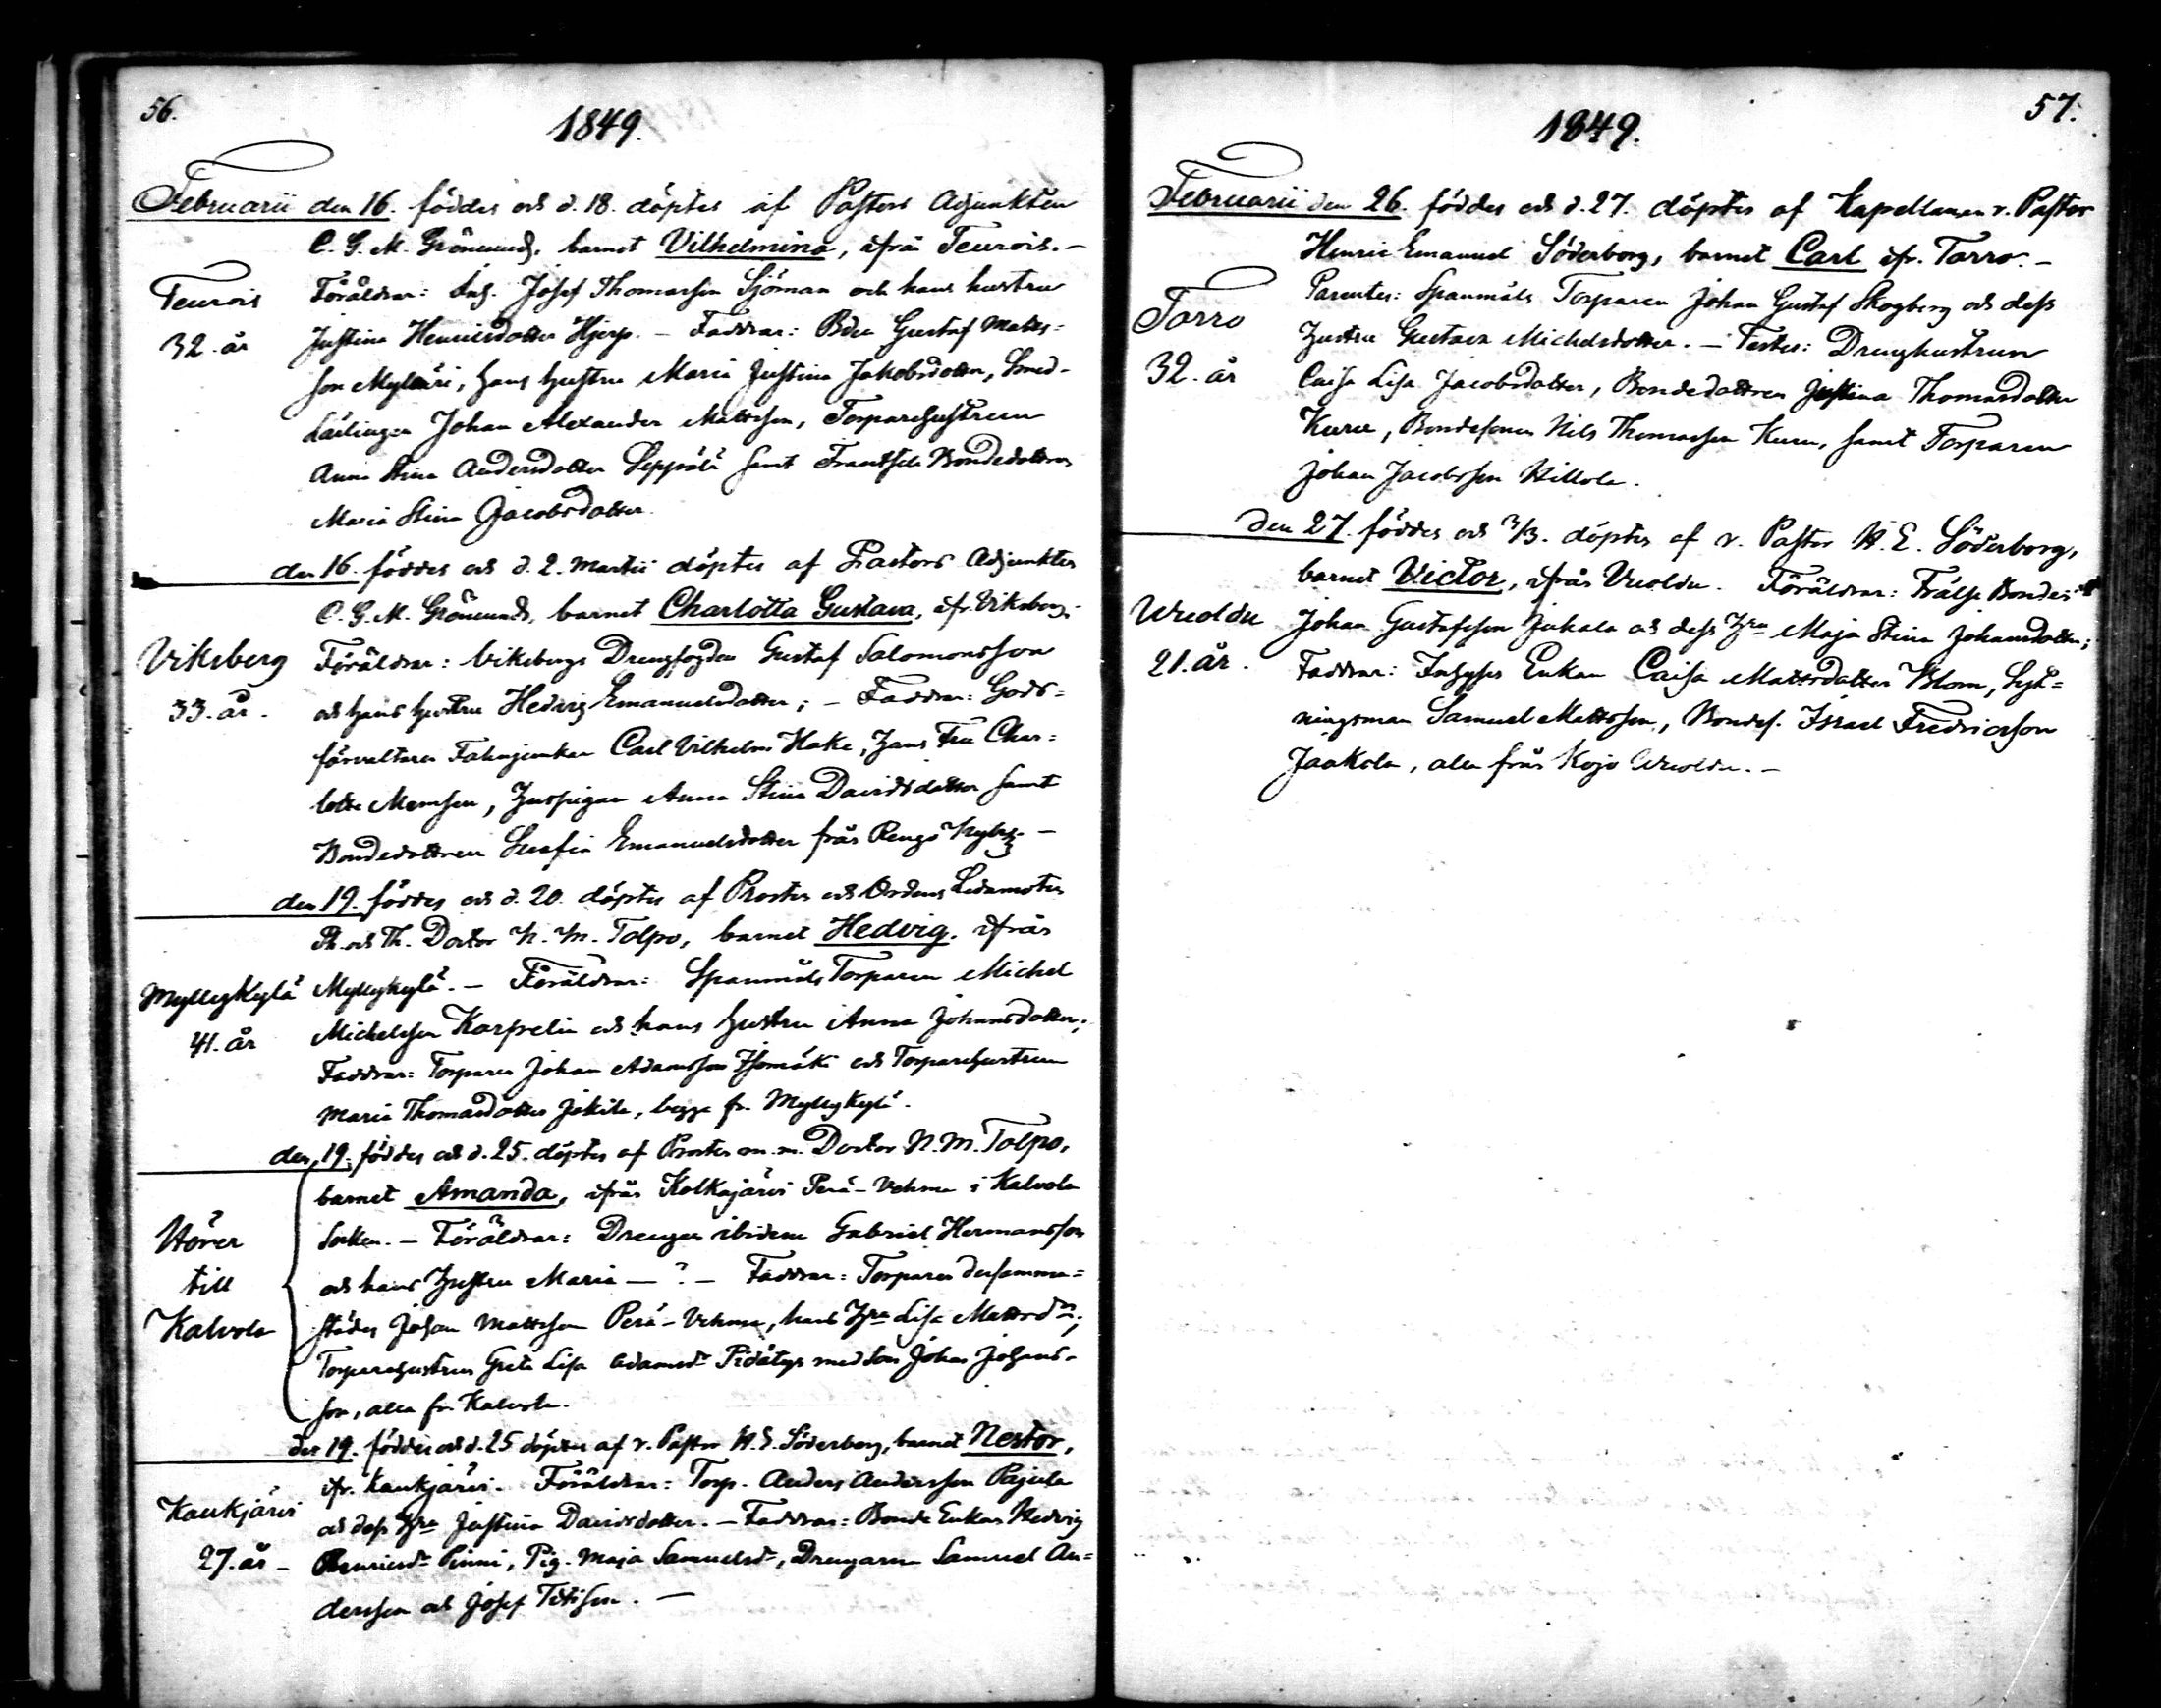 56.
1849.
Februarii den 16. föddes och d. 18. döptes af Pastors Adjunkten
C. G. M. Grönlund, barnet Vilhelmina, ifrån Teurois. –
Teurois
32. år
Föräldrar: Inh. Josef Thomasson Sjöman och hans hustru
Justina Henricsdotter Hjerp. – Faddrar: Bdn Gustaf Matts-
son Mylläri, hans hustru Maria Justina Jakobsdotter, Smed-
Lärlingen Johan Alexander Mattsson, Torparehustrun
Anna Stina Andersdotter Seppälä samt Frantsila Bondedottren
Maria Stina Jacobsdotter.
den 16. föddes och d. 2. Martii döptes af Pastors Adjunkten
C. G. M. Grönlund, barnet Charlotta Gustava, ifr. Viksberg.
Viksberg
33. år.
Föräldrar: Viksbergs Drengfogden Gustaf Salomonsson
och hans hustru Hedvig Emanuelsdotter; – Faddrar: Gods-
förvaltaren Fahnjunkar Carl Vilhelm Hake, hans Fru Char-
lotta Memsen, Huspigan Anna Stina Davidsdotter samt
Bondedottren Serafia Emanuelsdotter från Rengo
den 19. föddes och d. 20. döptes af Prosten och Ordens Ledamoten
Ph. och Th. Doctor N. M. Tolpo, barnet Hedvig, ifrån
Myllykylä
41. år
Myllykylä. – Föräldrar: Spanmåls Torparen Michel
Michelsson Karpelin och hans hustru Anna Johansdotter;
Faddrar: Torparen Johan Adamsson Isomäki och Torparehustrun
Maria Thomasdotter Jokila, begge fr. Myllykylä.
den 19. föddes och d. 25. döptes af Prosten m. m. Doctor N. M. Tolpo,
barnet Amanda, ifrån Kolkajärvi Perä-Vehma i Kalvola
Hörer
till
Kalvola
Socken. – Föräldrar: Drengen ibidem Gabriel Hermansson
och hans Hustru Maria – ? – Faddrar: Torparen dersamma-
städes Johan Mattsson Perä-Vehma, hans Hru Lisa Mattsdr;
Torparehustrun Greta Lisa Adamsdr med Son Johan Johans-
son, alla fr. Kalvola.
den 19. föddes och d. 25 döptes af v. Pastor H. E. Söderborg, barnet Nestor,
Kaukjärvi
27. år –
ifr. Kaukjärvi. Föräldrar: Torp. Anders Andersson Pajula
och dess Hru Justina Davidsdotter. – Faddrar: Bonde Enkan Hedvig
Henricsdr Pinni, Pig. Maja Samuelsdr, Drengarne Samuel An-
dersson och Josef . –
57.
1849.
Februarii den 26. föddes och d. 27. döptes af Kapellanen v. Pastor
Henric Emanuel Söderborg, barnet Carl ifr. Torro. –
Torro
32. år
Parentes: Spanmåls Torparen Johan Gustaf Skogberg och dess
Hustru Gustava Michelsdotter. – Testes: Drenghustrun
Caisa Lisa Jacobsdotter, Bondedottren Justina Thomasdotter
Kuru, Bondesonen Nils Thomasson Kuru, samt Torparen
Johan Jacobsson Hillola.
den 27. föddes och 3/3. döptes af v. Pastor H. E. Söderborg,
barnet Victor, ifrån Vuoldu. Föräldrar: Frälse Bonden
Vuoldu
21. år.
Johan Gustafsson Jukala och dess Hru Maja Stina Johansdotter;
Faddrar: Inhyses Enkan Caisa Mattsdotter Blom, Syt-
ningsman Samuel Mattsson, Bondes. Israel Fredricsson
Jaakola, alla från Kojo Vuoldu. –